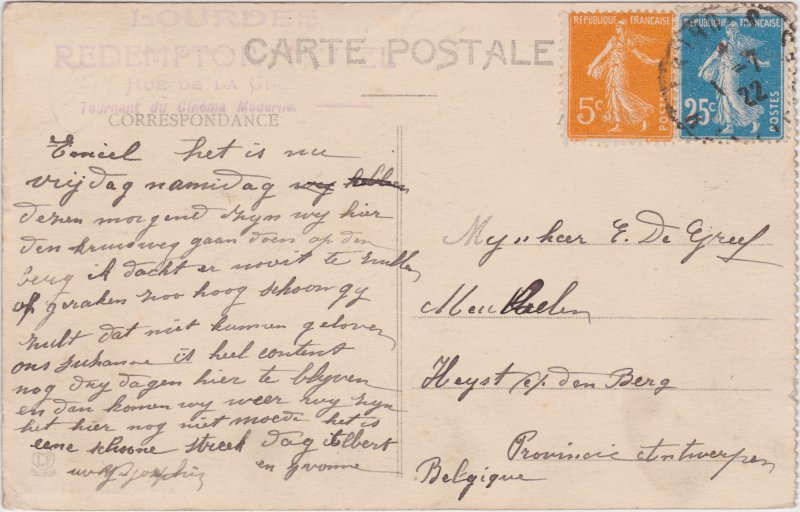 LOURDES
REDEMPTOR
RUE DE LA GR
Tournant du Cinéma Moderne.
CARTE POSTALE
CORRESPONDANCE
REPUBLIQUE FRANÇAISE
5c
POSTES
REPUBLIQUE FRANÇAISE
25c
POSTES
1 -7
22
Emiel het is nu
vrijdag namidag wy hebben
dezen morgend zyn wy hier
den kruisweg gaan doen op den
berg ik dacht er nooit te zullen
op geraken zoo hoog schoon gy
zult dat niet kunnen gelooven
ons Suzanne is heel content
nog dry dagen hier te blyven
en dan komen wy weer wy zyn
het hier nog niet moede het is
eene schoone streek dag Albert
en Yvonne
Mynheer E. De Greef
Meulelen
Heyst o/ den Berg
Provincie Antwerpen
Belgique